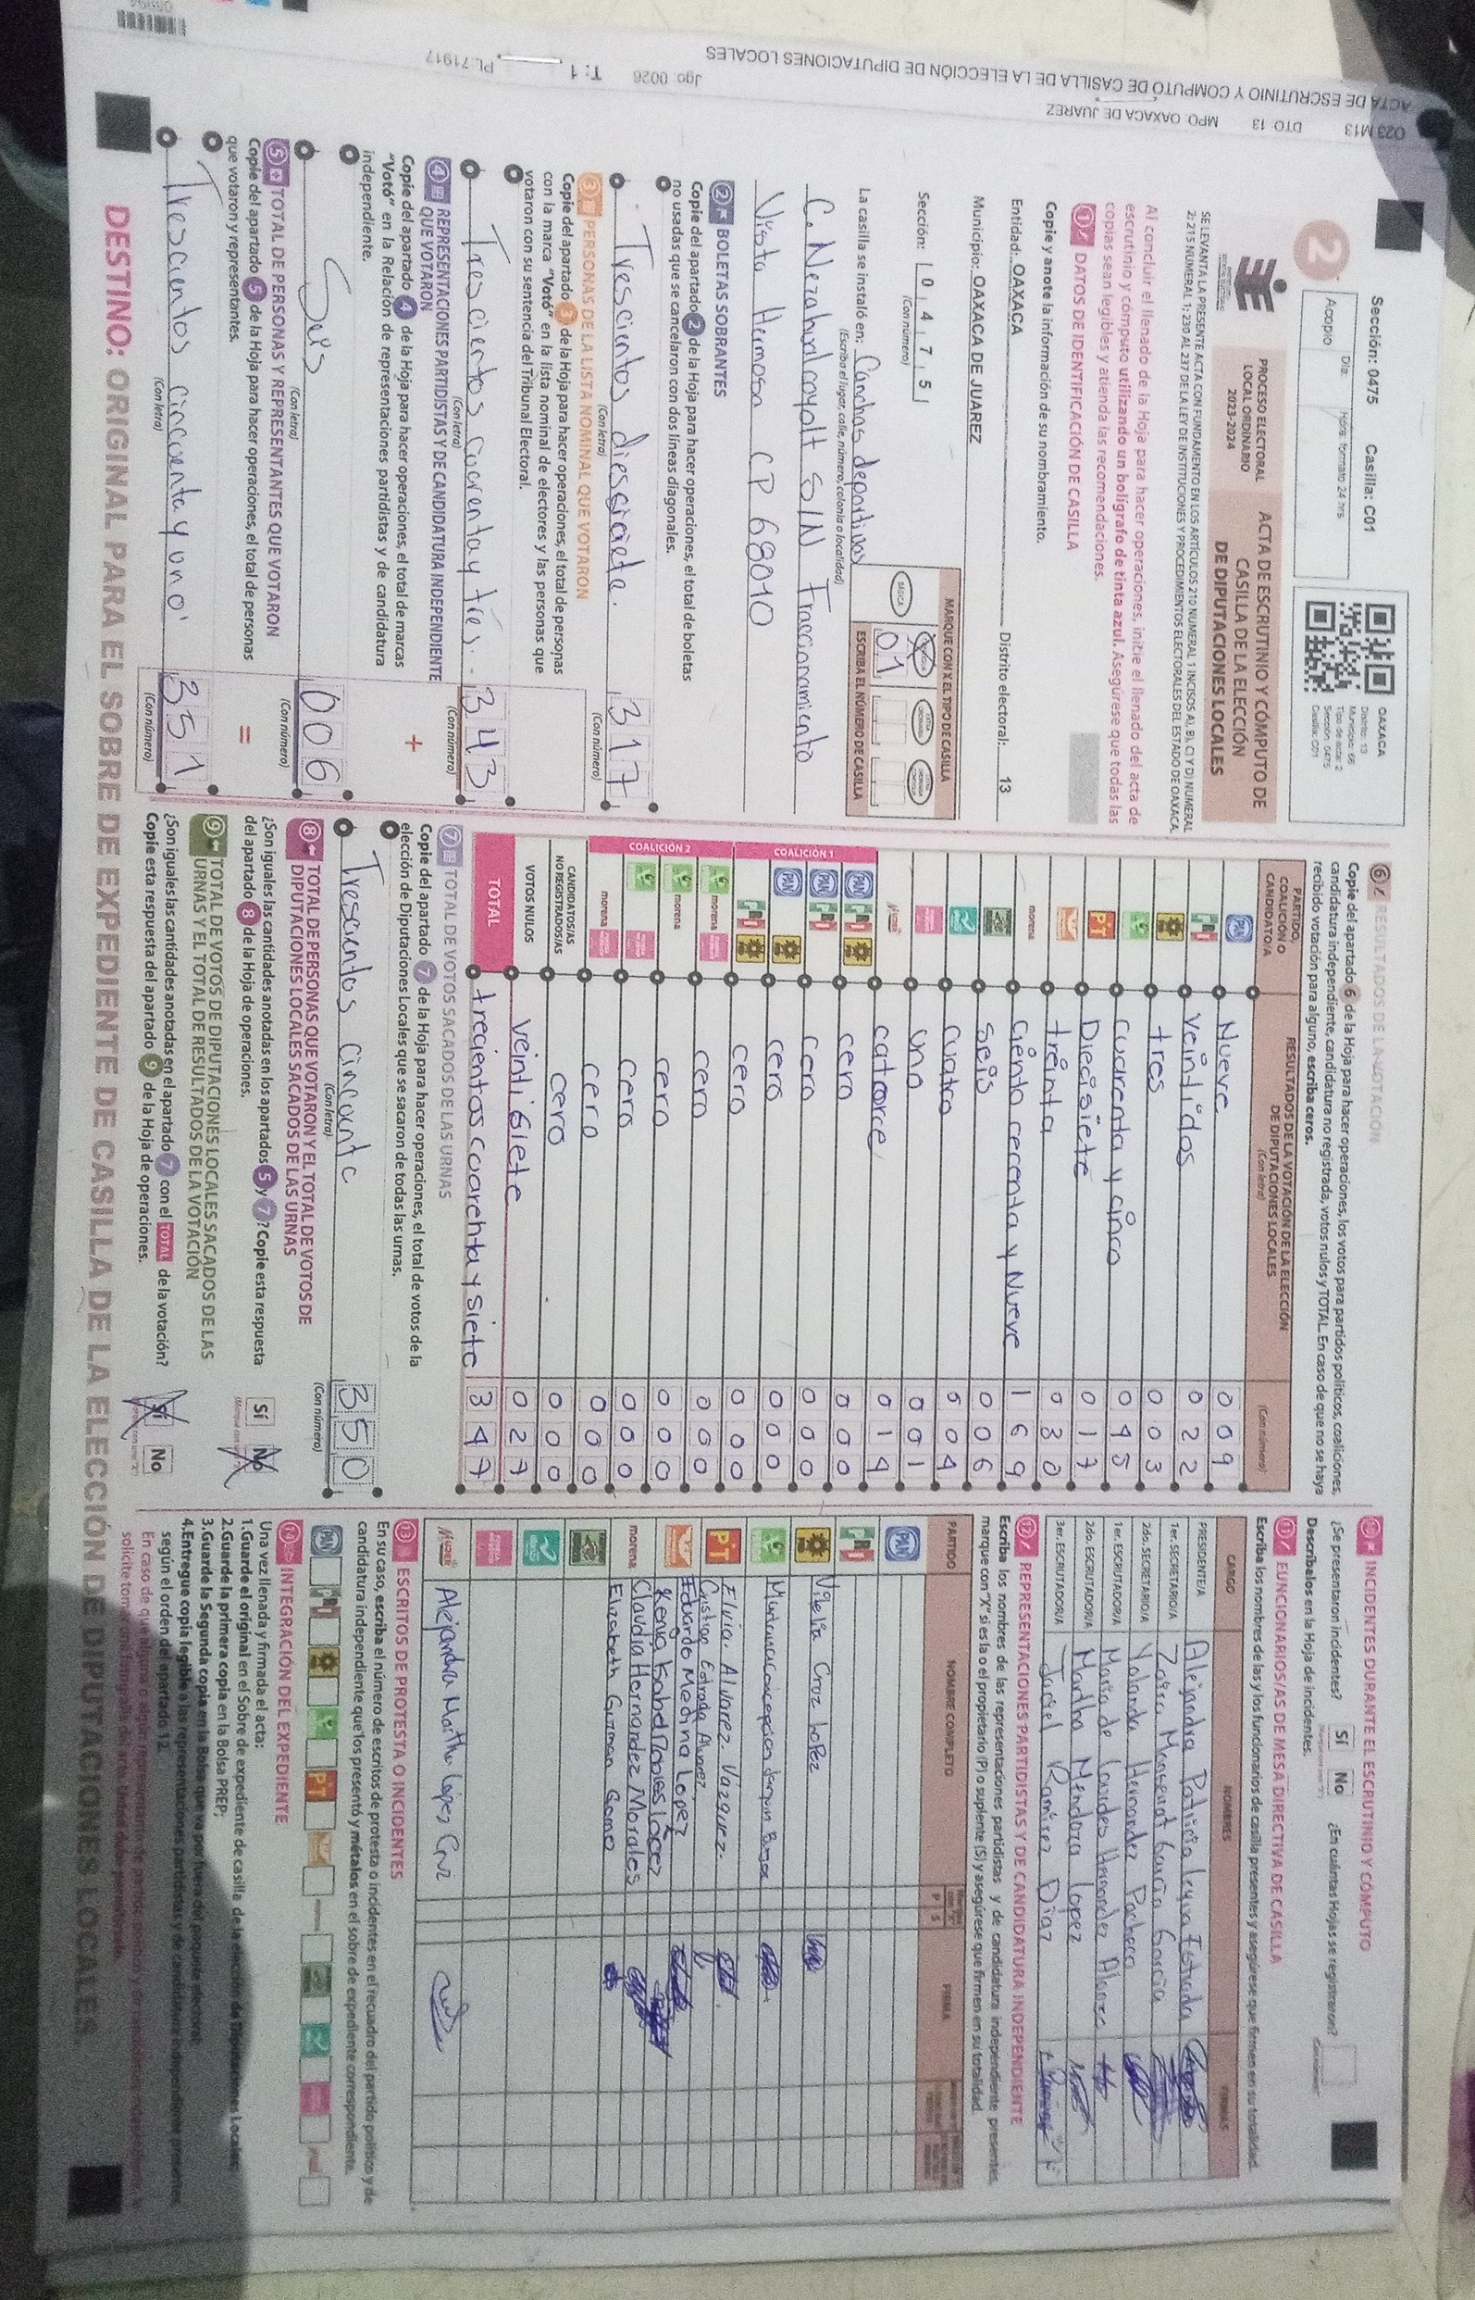 ACTA DE ESCRUTINIO Y CÓMPUTO DE CASILLA DE LA ELECCIÓN DE DIPUTACIONES LOCALES
023 M13 DTO: 13 MPO: OAXACA DE JUAREZ Jgo: 0026 T: 1 PL:71917
Sección: 0475 Casilla: C01
2
Acopio
Día: Hora: formato 24 hrs.
OAXACA
Distrito: 13
Municipio: 66
Tipo de acta: 2
Sección: 0475
Casilla: C01
PROCESO ELECTORAL
LOCAL ORDINARIO
2023-2024
ACTA DE ESCRUTINIO Y CÓMPUTO DE
CASILLA DE LA ELECCIÓN
DE DIPUTACIONES LOCALES
SE LEVANTA LA PRESENTE ACTA CON FUNDAMENTO EN LOS ARTÍCULOS 210 NUMERAL 1 INCISOS A), B), C) Y D) NUMERAL
2; 215 NUMERAL 1; 230 AL 237 DE LA LEY DE INSTITUCIONES Y PROCEDIMIENTOS ELECTORALES DEL ESTADO DE OAXACA.
Al concluir el llenado de la Hoja para hacer operaciones, inicie el llenado del acta de
escrutinio y cómputo utilizando un bolígrafo de tinta azul. Asegúrese que todas las
copias sean legibles y atienda las recomendaciones.
1 DATOS DE IDENTIFICACIÓN DE CASILLA
Copie y anote la información de su nombramiento.
Entidad: OAXACA Distrito electoral: 13
Municipio: OAXACA DE JUAREZ
Sección: 0 4 7 5
(Con número)
MARQUE CON X EL TIPO DE CASILLA
BÁSICA
ESCRIBA EL NÚMERO DE CASILLA
01
La casilla se instaló en: Canchas deportivas
(Escriba el lugar, calle, número, colonia o localidad)
C. Nezahualcoyolt S/N Fraccionamiento
Vista Hermosa CP 68010
2 BOLETAS SOBRANTES
Copie del apartado 2 de la Hoja para hacer operaciones, el total de boletas
no usadas que se cancelaron con dos líneas diagonales.
Trescientos diescisiete. 317
(Con letra) (Con número)
3 PERSONAS DE LA LISTA NOMINAL QUE VOTARON
Copie del apartado 3 de la Hoja para hacer operaciones, el total de personas
con la marca "Votó" en la lista nominal de electores y las personas que
votaron con su sentencia del Tribunal Electoral.
Trescientos cuarenta y tres. 343
(Con letra) (Con número)
4 REPRESENTACIONES PARTIDISTAS Y DE CANDIDATURA INDEPENDIENTE
QUE VOTARON
Copie del apartado 4 de la Hoja para hacer operaciones, el total de marcas
"Votó" en la Relación de representaciones partidistas y de candidatura
independiente.
+
Seis 006
(Con letra) (Con número)
5 TOTAL DE PERSONAS Y REPRESENTANTES QUE VOTARON
Copie del apartado 5 de la Hoja para hacer operaciones, el total de personas
que votaron y representantes.
=
Trescientos cincuenta y uno 351
(Con letra) (Con número)
6 RESULTADOS DE LA VOTACIÓN
Copie del apartado 6 de la Hoja para hacer operaciones, los votos para partidos políticos, coaliciones,
candidatura independiente, candidatura no registrada, votos nulos y TOTAL. En caso de que no se haya
recibido votación para alguno, escriba ceros.
PARTIDO,
COALICIÓN O
CANDIDATO/A
RESULTADOS DE LA VOTACIÓN DE LA ELECCIÓN
DE DIPUTACIONES LOCALES
(Con letra) (Con número)
PAN Nueve 009
PRI veintidos 022
tres 003
cuarenta y cinco 045
PT Diecisiete 017
treinta 030
morena Ciento cecenta y Nueve 169
seis 006
cuatro 004
uno 001
catorce 014
COALICIÓN 1
PAN PRI cero 000
PAN PRI cero 000
PAN cero 000
PRI cero 000
COALICIÓN 2
morena cero 000
morena cero 000
cero 000
morena cero 000
CANDIDATOS/AS
NO REGISTRADOS/AS cero 000
VOTOS NULOS veinti siete 027
TOTAL trecientos coarenta y siete 347
7 TOTAL DE VOTOS SACADOS DE LAS URNAS
Copie del apartado 7 de la Hoja para hacer operaciones, el total de votos de la
elección de Diputaciones Locales que se sacaron de todas las urnas.
Trescientos cincuenta 350
(Con letra) (Con número)
8 TOTAL DE PERSONAS QUE VOTARON Y EL TOTAL DE VOTOS DE
DIPUTACIONES LOCALES SACADOS DE LAS URNAS
¿Son iguales las cantidades anotadas en los apartados 5 y 7? Copie esta respuesta
del apartado 8 de la Hoja de operaciones.
Sí No
9 TOTAL DE VOTOS DE DIPUTACIONES LOCALES SACADOS DE LAS
URNAS Y EL TOTAL DE RESULTADOS DE LA VOTACIÓN
¿Son iguales las cantidades anotadas en el apartado 7 con el TOTAL de la votación?
Copie esta respuesta del apartado 9 de la Hoja de operaciones.
Sí No
10 INCIDENTES DURANTE EL ESCRUTINIO Y CÓMPUTO
¿Se presentaron incidentes? Sí No ¿En cuántas Hojas se registraron?
Descríbalos en la Hoja de incidentes.
11 FUNCIONARIOS/AS DE MESA DIRECTIVA DE CASILLA
Escriba los nombres de las y los funcionarios de casilla presentes y asegúrese que firmen en su totalidad.
CARGO NOMBRES FIRMAS
PRESIDENTE/A Alejandra Patricia Leyva Estrada
1er. SECRETARIO/A Zoitza Monserrat Garcia Garcia
2do. SECRETARIO/A Yolanda Hernandez Pacheco
1er. ESCRUTADOR/A Maria de Lourdes Hernandez Alonzo
2do. ESCRUTADOR/A Martha Mendoza Lopez
3er. ESCRUTADOR/A Jaciel Ramirez Diaz
12 REPRESENTACIONES PARTIDISTAS Y DE CANDIDATURA INDEPENDIENTE
Escriba los nombres de las representaciones partidistas y de candidatura independiente presentes,
marque con "X" si es la o el propietario (P) o suplente (S) y asegúrese que firmen en su totalidad.
PARTIDO NOMBRE COMPLETO P S FIRMA
PAN
PRI
Cruz Lopez
concepcion
PT Elvia Alvarez Vázquez.
Cristian Estrada Alvarez
Eduardo Medina Lopez
Kenia Isabel Robles López
morena Claudia Hernandez Morales
Elizabeth Guzman
Alejandra
13 ESCRITOS DE PROTESTA O INCIDENTES
En su caso, escriba el número de escritos de protesta o incidentes en el recuadro del partido político y de
candidatura independiente que los presentó y métalos en el sobre de expediente correspondiente.
PAN PRI PT
14 INTEGRACIÓN DEL EXPEDIENTE
Una vez llenada y firmada el acta:
1.Guarde el original en el Sobre de expediente de casilla de la elección de Diputaciones Locales;
2.Guarde la primera copia en la Bolsa PREP;
3.Guarde la Segunda copia en la Bolsa que va por fuera del paquete electoral;
4.Entregue copia legible a las representaciones partidistas y de candidatura independiente presentes,
según el orden del apartado 12.
DESTINO: ORIGINAL PARA EL SOBRE DE EXPEDIENTE DE CASILLA DE LA ELECCIÓN DE DIPUTACIONES LOCALES.